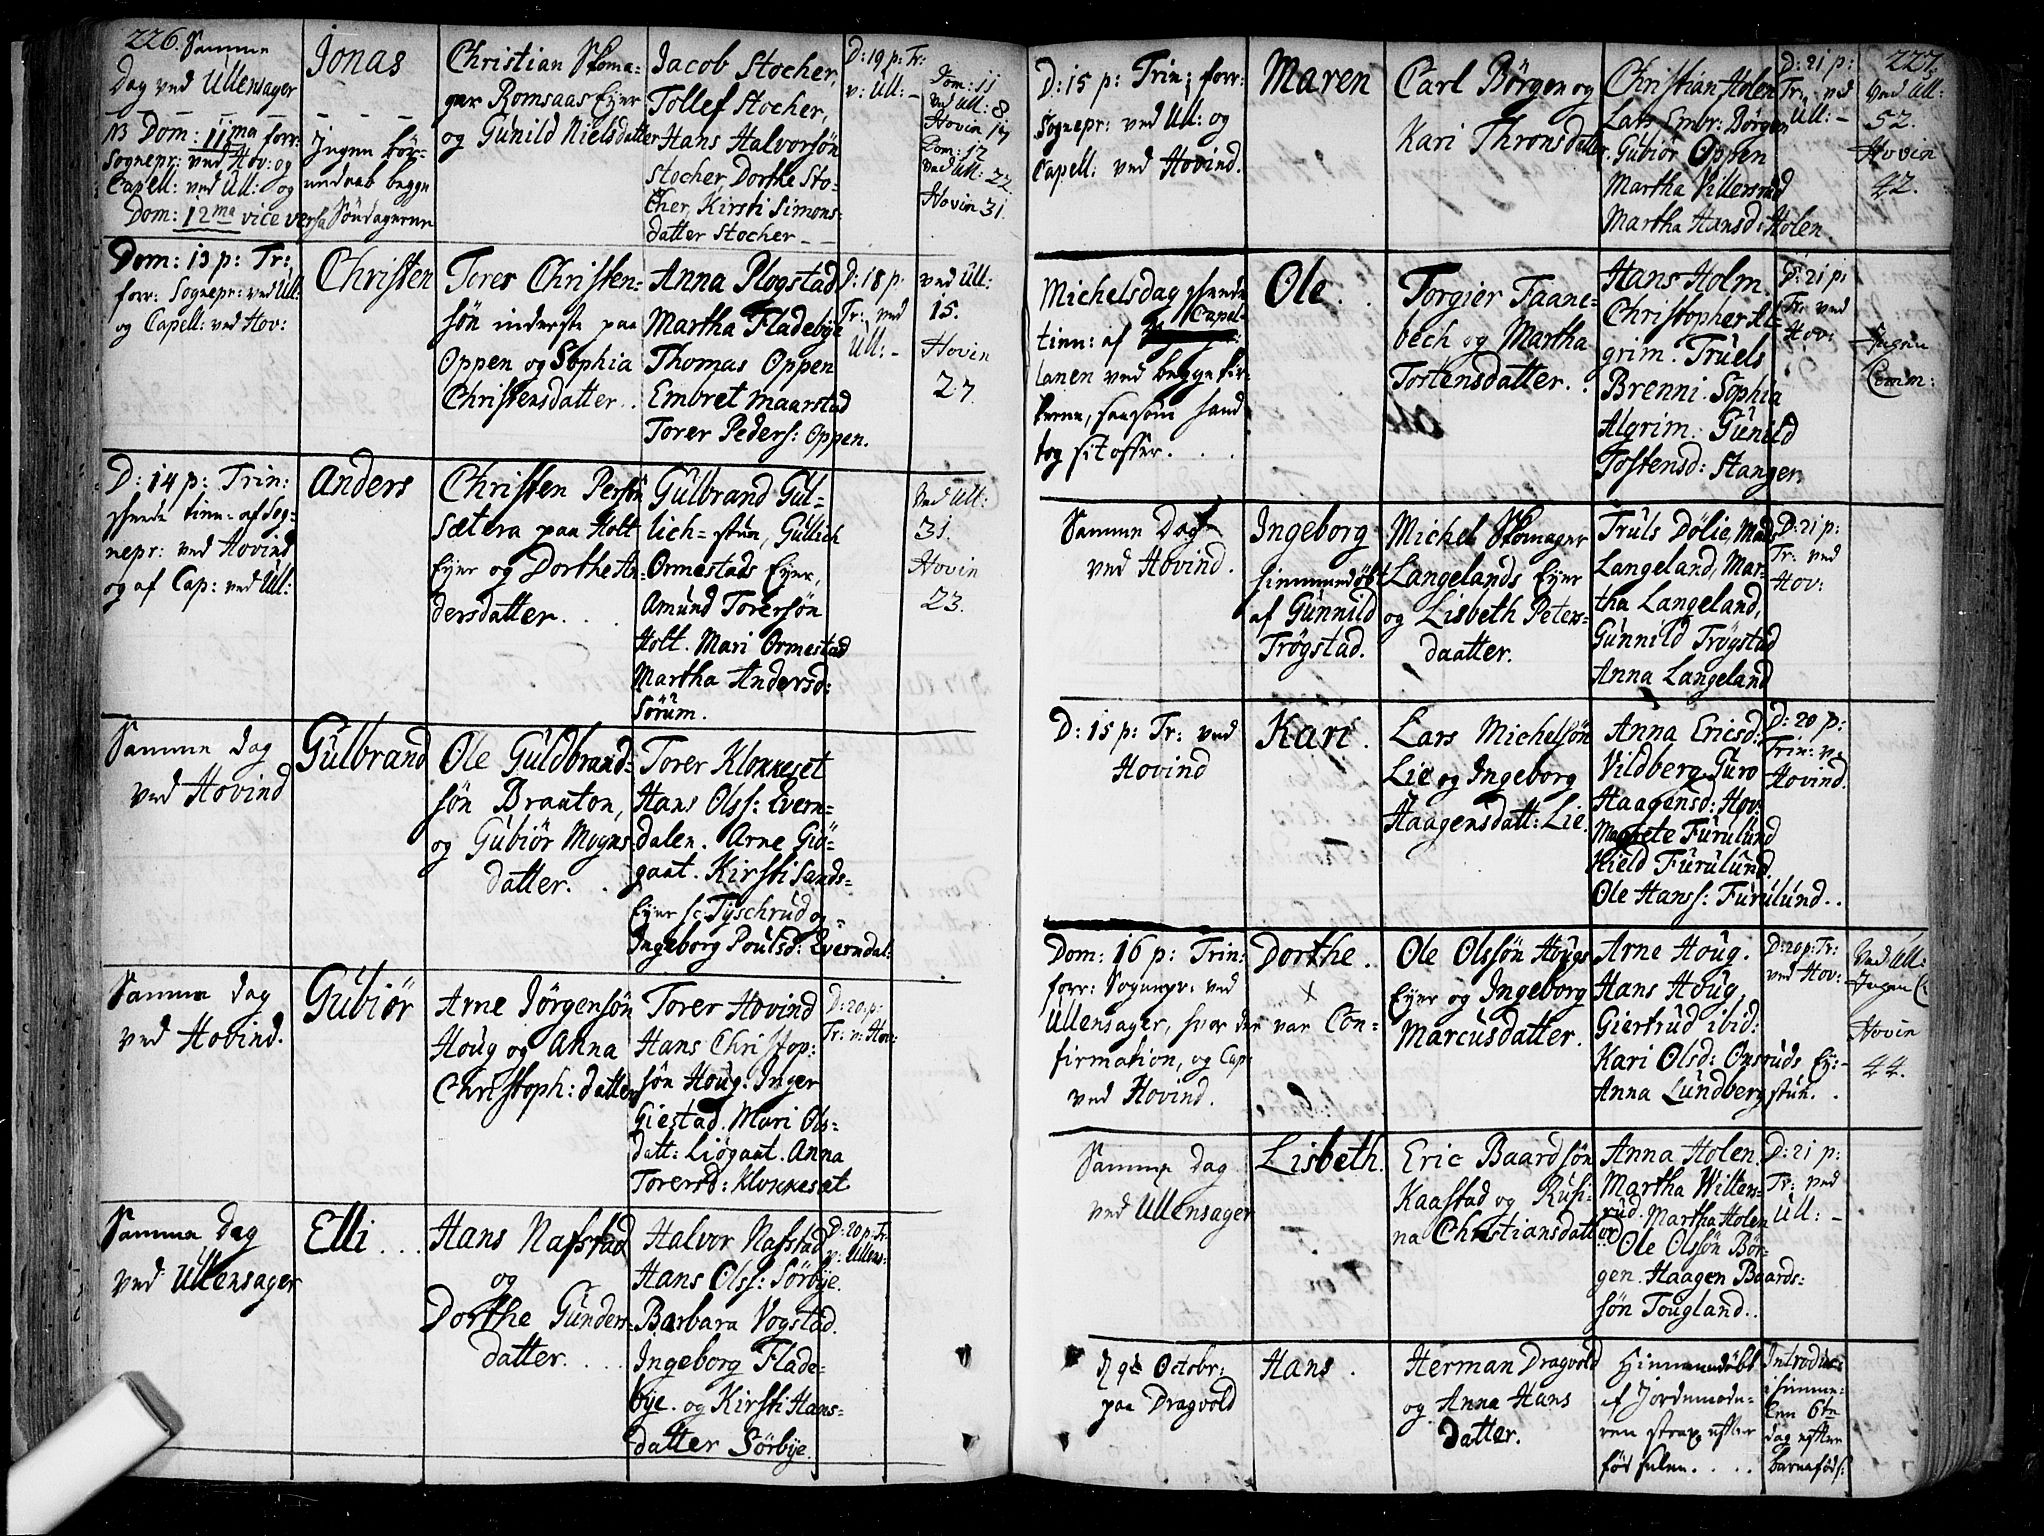 226. Samme
Dag ved Ullensager
NB Dom: 11ma forr:
Sognepr: ved Hov: og
Capell: ved Ull: og
Dom: 12ma vice versa
Jonas
Ingen før-
begge
Søndagerne
Christian Skoma-
ger Romsaas Eyer
og Gunild Nielsdatter
Jacob Stocher,
Tollef Stocher,
Hans Halvorsön
Stocher, Dorthe Sto-
cher, Kirsti Simons-
datter Stocher - -
D: 19 p: Tr:
v: Ull: -
Dom: 11
ved Ull: 8
Hovin 17
Dom: 12
ved Ull: 22.
Hovin 31.
Dom: 13 p: Tr:
forr: Sognepr: ved Ull:
og Capell: ved Hov:
Christen
Torer Christen-
sön inderste paa
Oppen og Sophia
Christensdatter . .
Anna Plogstad
Martha Fladebye
Thomas Oppen
Embret Maarstad
Torer Peders: Oppen.
D: 18 p:
Tr: ved
Ull: -
ved Ull:
15.
Hovin
27.
D: 14 p: Trin:
tien: af Sog-
nepr: ved Hovind
og af Cap: ved Ull:
Anders
Christen Persön
Sætera paa Holt
Eyer og Dorthe An-
dersdatter. . .
Gulbrand Gul-
lich-stun, Gullich
Ormestads Eyer,
Amund Torersön
Holt. Mari Ormestad
Martha Andersd:
Sörum.
ved Ull:
31.
Hovin
23.
Samme Dag
ved Hovind
Gulbrand
Ole Guldbrand-
sön Braaton,
og Gubiör Mogns-
datter. .
Torer Klokkeset
Hans Olss: Evern-
dalen. Arne Giö-
gaat. Kirsti Sands-
Eyer sc: Tyschrud og
Ingeborg Poulsd: Everndal:
Samme dag
ved Hovind.
Gubiör
Arne Jörgensön
Houg og Anna
Christoph: datter
Torer Hovind
Hans Christop:
sön Houg. Inger
Giestad. Mari Ols-
datt: Liögaat. Anna
Torersd: Klokkesæt
D: 20. p:
Tr: v: Hov:
Samme Dag
ved Ullensager
Elli . . .
Hans Nafstad
og
Dorthe Gunders-
datter. . . .
Halvor Nafstad
Hans Olss: Sörbye.
Barbara Vogstad.
Ingeborg Flade-
bye. og Kirsti Hans-
datter Sörbye.
D: 20 p: Tr:
v: Ullens:
D: 15 p: Trin; forr:
Sognepr: ved Ull: og
Capell: ved Hovind.
Maren
Carl Börgen og
Kari Thronsdatter.
Christian Holen
Lars Embr: Börgen
Gubior Oppen
Martha Villersrud
Martha Hansd: Holen
D: 21 p:
Tr: ved
Ull: -
227.
ved Ull:
52.
Hovin
42.
Michelsdag
tien: af Capel-
lanen ved begge Kir-
kerne, saasom hand
tog sit offer. . . .
Ole. .
Torgier Taane-
bech og Martha
Tostensdatter. .
Hans Holm.
Christopher Al-
grim. Truels
Brenni. Sophia
Algrim. Gunild
Tostensd: Stanger.
D: 21 p:
Tr: ved
Hov:
Ingen
Comm:
Samme Dag
ved Hovind.
Ingeborg
hiemmedöbt
af Gunnild
Trögstad.
Michel Skomager
Langelands Eyer
og Lisbeth Peters-
daatter.
Truls Dölie, Mads
Langeland, Mar-
tha Langeland,
Gunnild Trögstad
Anna Langeland
D: 21 p:
Tr: ved
Hov:
D: 15 p: Tr: ved
Hovind
Kari.
Lars Michelsön
Lie og Ingeborg
Haagensdatt: Lie.
Anna Ericsd:
Vildberg. Guro
Haagensd: Hov.
Magrete Furulund
Kield Furulund.
Ole Hanss: Furulund. .
D: 20 p:
Trin: v:
Hovind.
Dom: 16 p: Trin:
forr: Sognepr: ved
Ullensager, hvor der var Con-
firmation, og Cap:
ved Hovind.
Dorthe. .
Ole Olssön Hougs
Eyer og Ingeborg
Marcusdatter.
Arne Houg.
Hans Houg,
Giertrud ibid:
Kari Olsd: Onsruds Ey: -
Anna Lundberg stun. .
D: 20 p: Tr:
ved Hov:
ved Ull:
Ingen C:
Hovin
44.
Samme dag
ved Ullensager
Lisbeth.
Eric Baardsön
Kaastad og Rusi-
na Christiansdatter
Anna Holen.
Martha Willers-
rud. Martha Holen
Ole Olssön Bör-
gen. Haagen Baards:
sön Tougland. .
D: 21 p:
Tr: ved
Ull: -
d 9de Octobr:
paa Dragvold
Hans .
Herman Dragvold
og Anna Hans
Datter.
Hiemmedöbt
af Jordemode-
ren strax efter
födselen. . . .
Introduc:
i hiemme-
Den 6te
dag efter
barneföds: